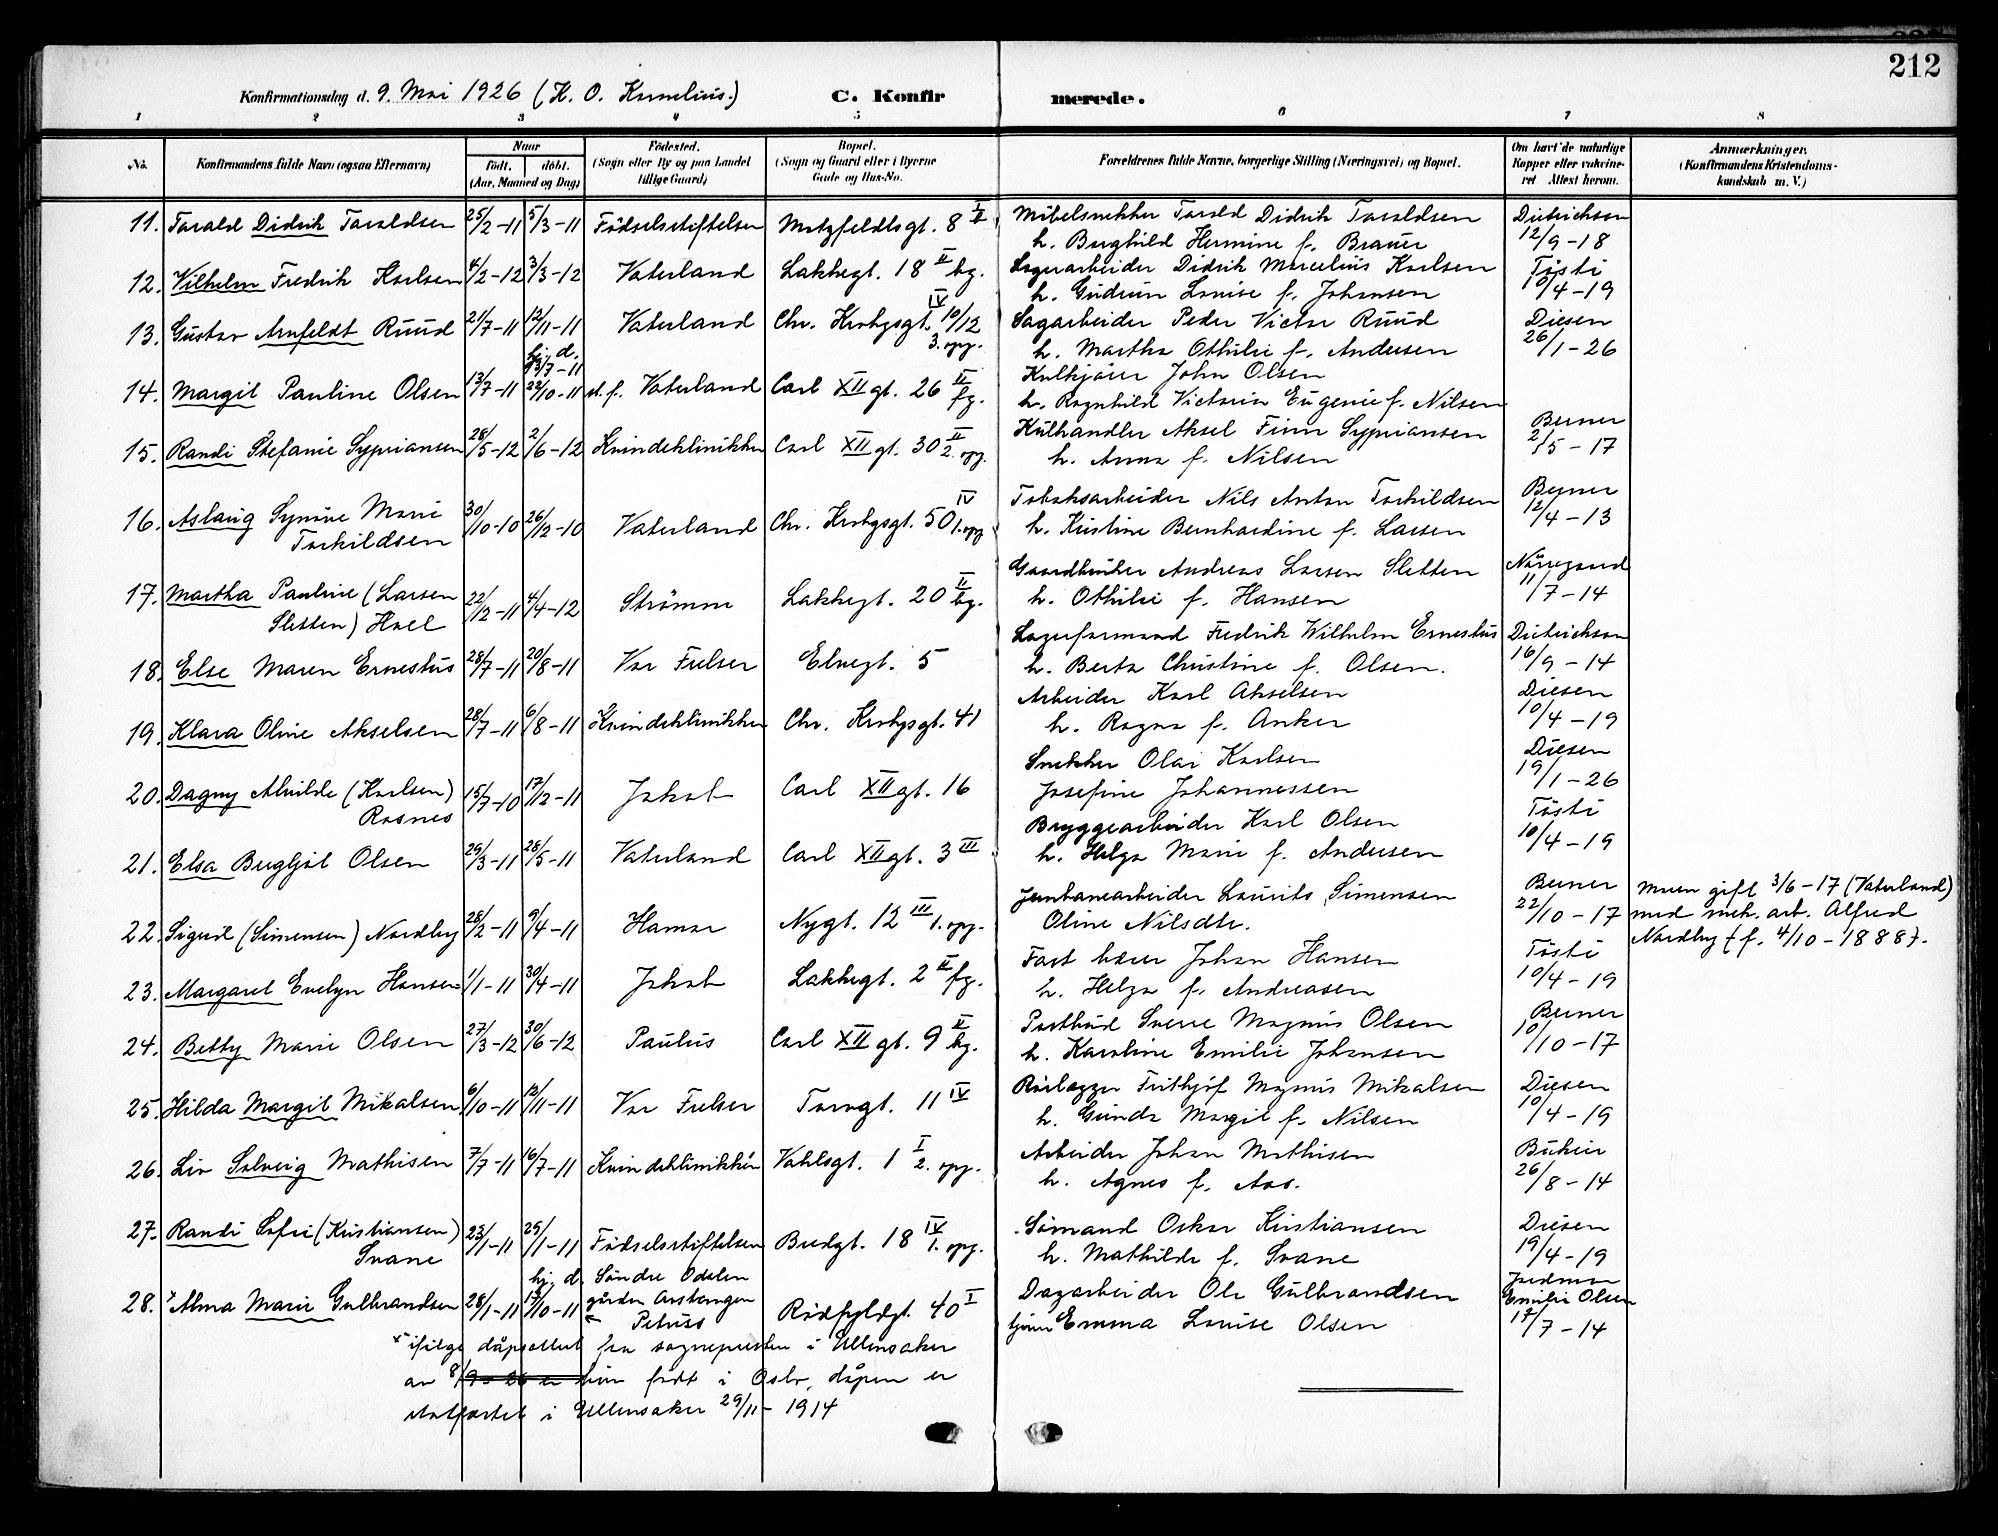 212
Konfirmationsdag d. 9. Mai 1926 (H. O. Kornelius.) C. Konfirmerede.
1 2 3 4 5 6 7 8
No. Konfirmandens fulde Navn (ogsaa Efternavn) Naar født. døbt. (Aar, Maaned og Dag) Fødested. (Sogn eller By og paa Landet tillige Gaard) Bopæl. (Sogn og Gaard eller i Byerne Gade og Hus-No. Forældrenes fulde Navne, borgerlige Stilling (Næringsvei) og Bopæl. Om havt de naturlige Kopper eller vakcineret. Attest herom. Anmærkninger. (Konfirmandens Kristendomskundskab m. V.)
11. Torald Didrik Toraldsen 25/2-11 5/3-11 Fødselsstiftelsen Motzfeldtsgt. 8 II Møbelsnekker Torald Didrik Toraldsen Dietrichson
h. Borghild Hermine f. Brauer 12/9-18
12. Vilhelm Fredrik Karlsen 4/2-12 3/3-12 Vaterland Lakkegt. 18 II bg. Lagerarbeider Didrik Marcelius Karlsen Tøsti
h. Gudrun Louise f. Johansen 10/4-19
13. Gustav Arnfeldt Ruud 21/7-11 12/11-11 Vaterland Chr. Krohgsgt. 10/12 IV 3. opg. Sagarbeider Peder Victor Ruud Diesen
h. Martha Othilie f. Andersen 26/1-26
hj. d. 23/7-11
14. Margit Pauline Olsen 13/7-11 22/10-11 st. f. Vaterland Carl XII gt. 26 II fg. Kulkjører John Olsen
h. Ragnhild Victoria Eugenie f. Nilsen
15. Randi Stefanie Sypriansen 28/5-12 2/6-12 Kvindeklinikken Carl XII gt. 30 II 2. opg. Kulhandler Aksel Finn Sypriansen Berner
h. Anna f. Nilsen 2/5-17
16. Aslaug Synøve Marie 30/10-10 26/12-10 Vaterland Chr. Krohgsgt. 50 IV 1. opg. Tobaksarbeider Nils Anton Torkildsen Berner
Torkildsen h. Kristine Bernhardine f. Larsen 12/4-13
17. Martha Pauline (Larsen 22/12-11 4/4-12 Strømm Lakkegt. 20 II bg. Gaardbruker Andreas Larsen Sletten Nørregaard
Sletten) Hoel h. Othilie f. Hansen 11/7-14
18. Else Maren Ernestus 28/7-11 20/8-11 Vor Frelser Elvegt. 5 Lagerformand Fredrik Wilhelm Ernestus Dietrichson
h. Berta Christine f. Olsen. 16/9-14
19. Klara Oline Akselsen 28/7-11 6/8-11 Kvindeklinikken Chr. Krohgsgt. 41 Arbeider Karl Akselsen Diesen
h. Ragna f. Anker 10/4-19
20. Dagny Alvilde (Karlsen) 15/7-10 17/12-11 Jakob Carl XII gt. 16 Snekker Olai Karlsen Diesen
Rosnes Josefine Johannessen 19/1-26
21. Elsa Bergljot Olsen 29/3-11 28/5-11 Vaterland Carl XII gt. 3 III Bryggearbeider Karl Olsen Tøsti
h. Helga Marie f. Andersen 10/4-19
22. Sigurd (Simensen) Nordby 28/2-11 9/4-11 Hamar Nygt. 12 III 1. opg. Jernbanearbeider Laurits Simensen Berner moren gift 3/6-17 (Vaterland)
Oline Nilsdtr. 22/10-17 med mek. arb. Alfred
Nordby (f. 4/10-1888).
23. Margaret Evelyn Hansen 1/1-11 30/4-11 Jakob Lakkegt. 2 II fg. Fast bærer Johan Hansen Tøsti
h. Helga f. Andreasen 10/4-19
24. Betty Marie Olsen 27/3-12 30/6-12 Paulus Carl XII gt. 9 II bg. Postbud Sverre Magnus Olsen Berner
h. Karoline Emilie Johansen 10/10-17
25. Hilda Margit Mikalsen 6/10-11 12/11-11 Vor Frelser Torvgt. 11 IV Rørlægger Frithjof Magnus Mikalsen Diesen
h. Gunda Margit f. Nilsen 10/4-19
26. Liv Solveig Mathisen 7/7-11 16/7-11 Kvindeklinikken Vahlsgt. 1 I 2. opg. Arbeider Johan Mathisen
h. Agnes f. Aas. 26/8-14
27. Randi Sofie (Kristiansen) 23/1-11 29/1-11 Fødselsstiftelsen Bredgt. 18 IV 1. opg. Sømand Oskar Kristiansen Diesen
Svane h. Mathilde f. Svane 19/4-19
hj. d. Søndre Odalen
28. Alma Marie Gulbrandsen 28/1-11 15/10-11 gården Petrus Rødfyldgt. 40 I Dagarbeider Ole Gulbrandsen Jordmor Emilie Olsen
tjener Emma Louise Olsen 17/7-14
ifølge dåpsattest fra sognepresten i Ullensaker
av 8/9-26 er hun født i Oslo, dåpen er
statfæstet i Ullensaker 29/11-1914